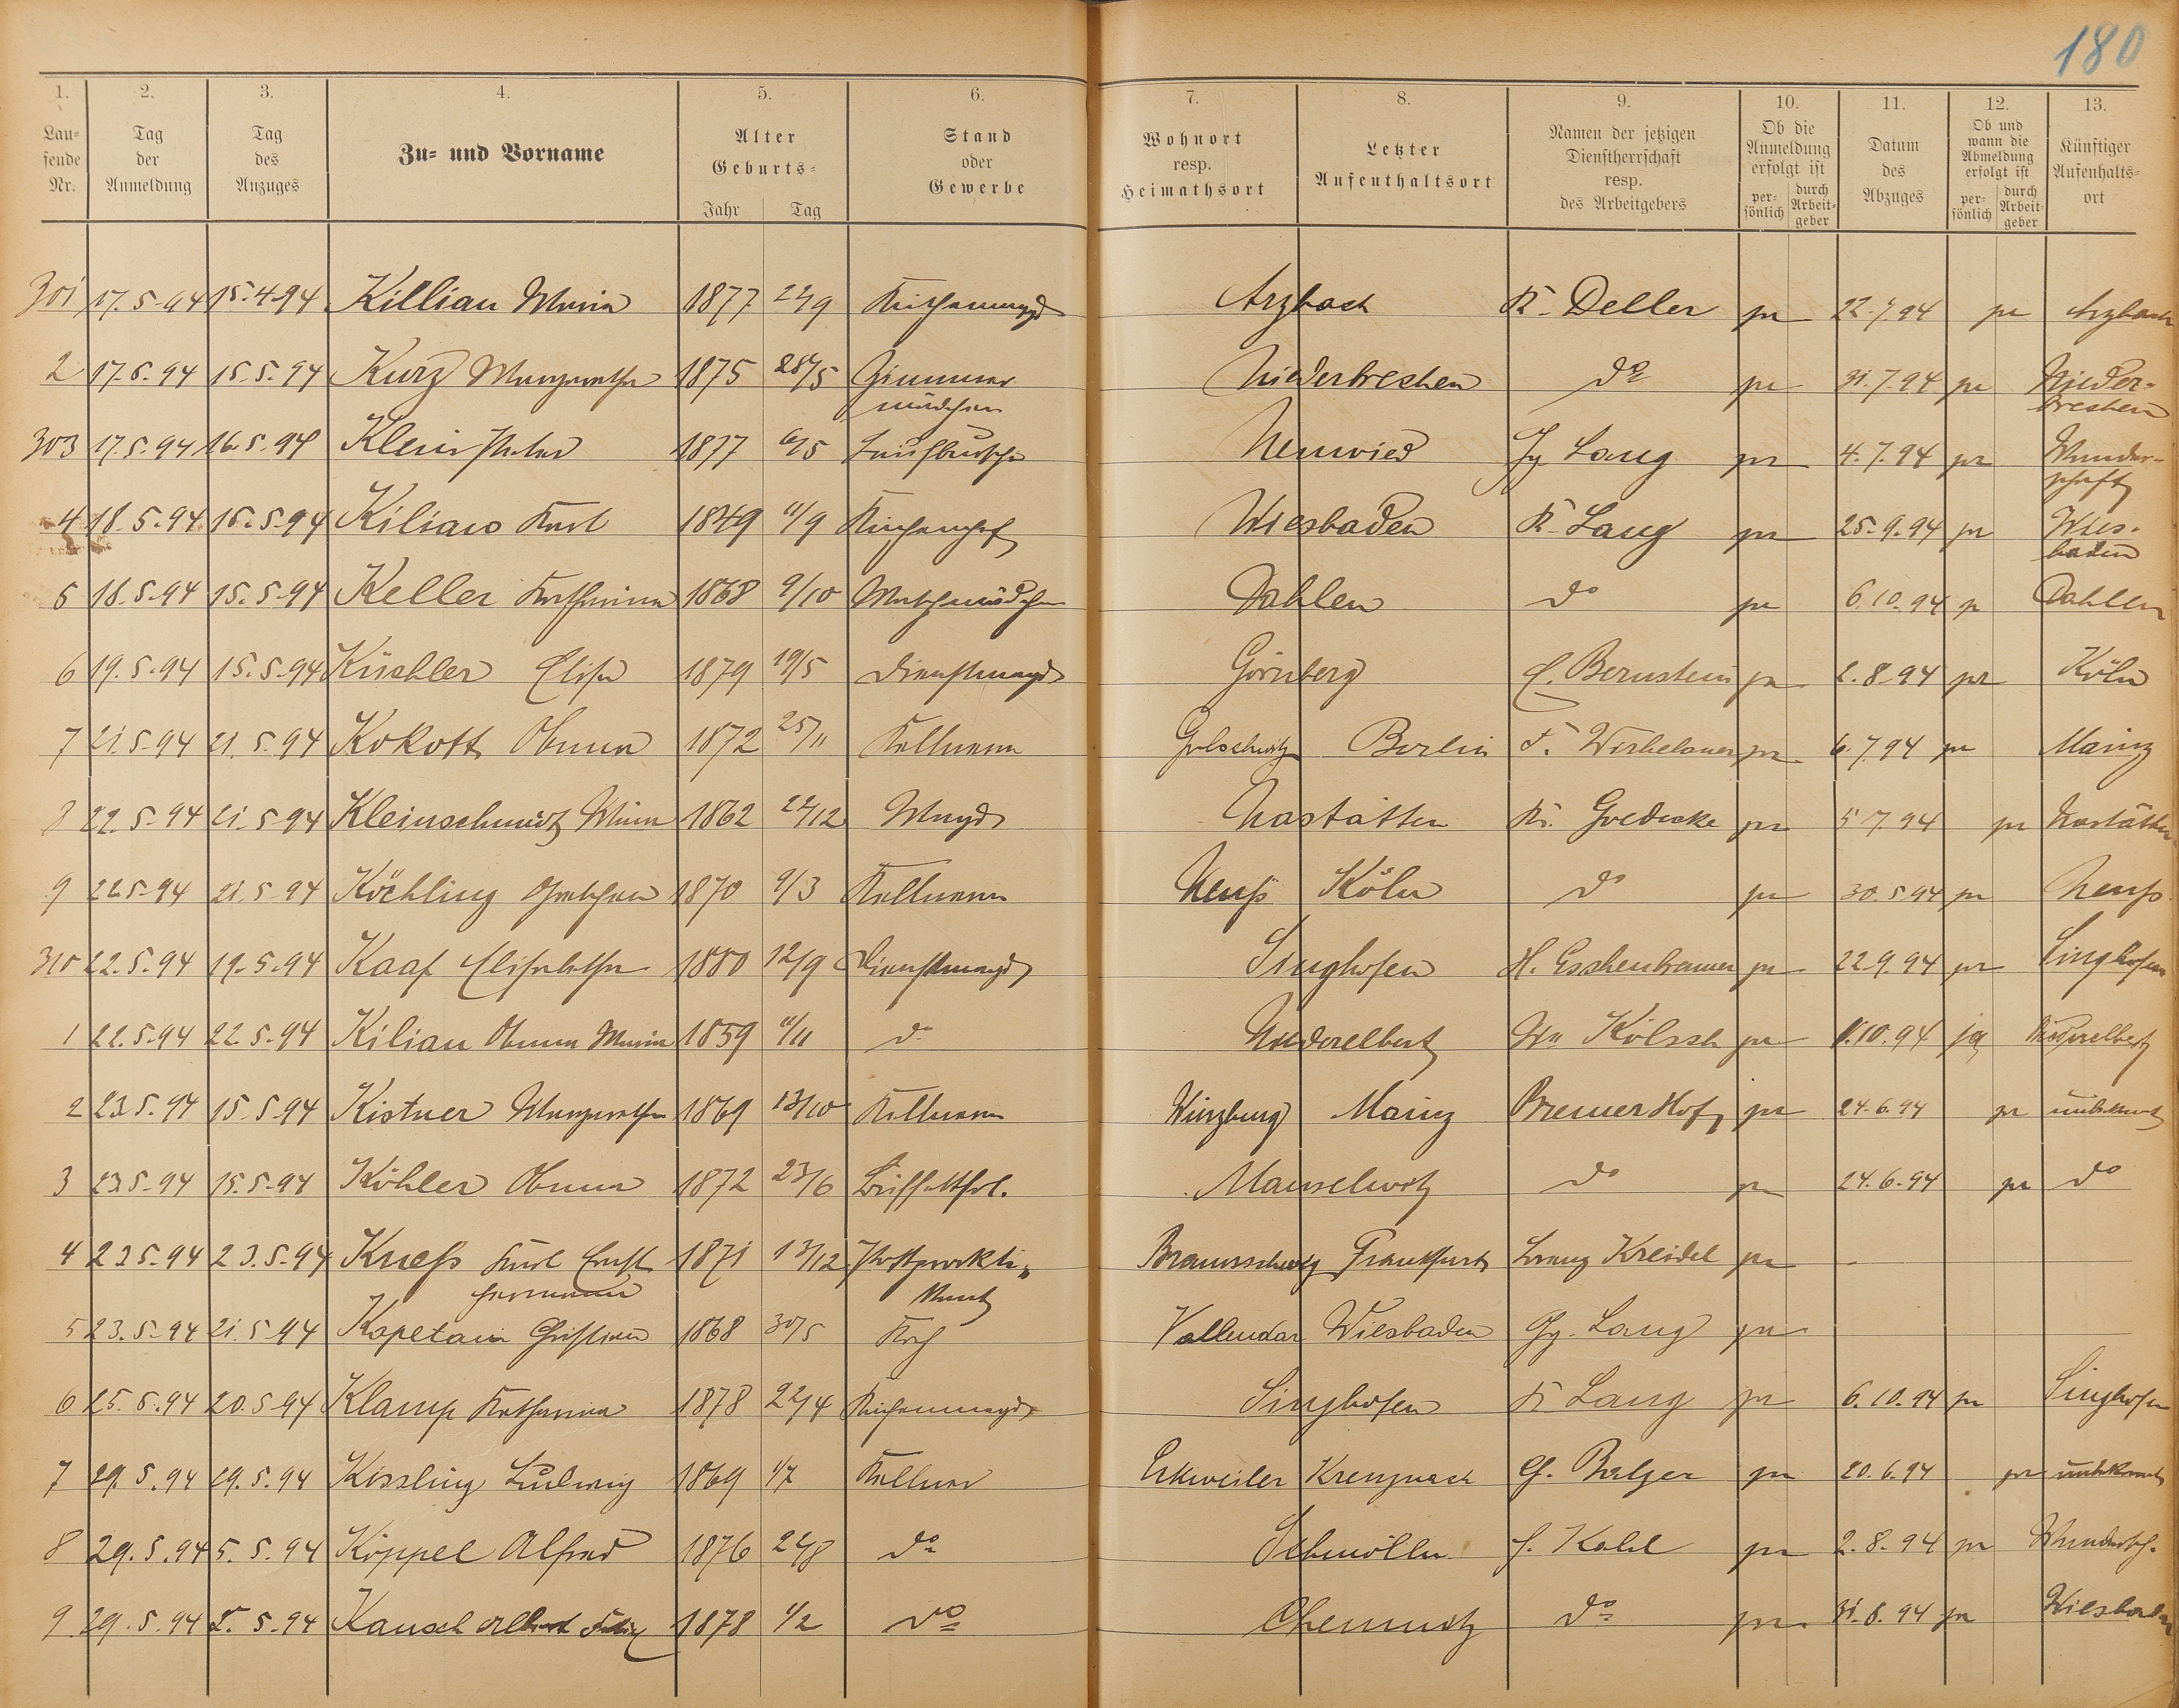 180
1. 2. 3. 4. 5. 6. 7. 8. 9. 10. 11. 12. 13.
Laufende Nr. Tag der Anmeldung Tag des Anzuges Zu- und Vorname Alter Geburts- Jahr Tag Stand oder Gewerbe Wohnort resp. Heimathsort Letzter Aufenthaltsort Namen der jetzigen Dienstherrschaft resp. des Arbeitgebers Ob die Anmeldung erfolgt ist persönlich durch Arbeitgeber Datum des Abzuges Ob und wann die Abmeldung erfolgt ist persönlich durch Arbeitgeber Künftiger Aufenhalts-ort
301 17.5.94 15.4.94 Killian Maria 1877 22/9 Küchenmagd Arzbach K. Deller pr 22.7.94 pr Arzbach
2 17.5.94 15.5.94 Kurz Margarethe 1875 28/5 Zimmer Niederbrechen do pr 31.7.94 pr Nieder-
mädchen brechen
303 17.5.94 16.5.94 Klein Peter 1877 6/5 Laufbursche Neuwied Jg Lang pr 4.7.94 pr Wander-
schaft
4 18.5.94 15.5.94 Kilian Karl 1849 11/9 Küchenchef Wiesbaden K. Lang pr 25.9.94 pr Wies-
baden
5 18.5.94 15.5.94 Keller Katharina 1868 9/10 Waschmädchen Dahlen do pr 6.10.94 p Dahlen
6 19.5.94 15.5.94 Küchler Elise 1879 19/5 Dienstmagd Görnberg E. Bernstein pr 2.8.94 pr Köln
7 21.5.94 21.5.94 Kokott Anna 1872 25/11 Kellnerin Golschwitz Berlin F. Wirbelauer pr 6.7.94 pr Mainz
8 22.5.94 21.5.94 Kleinschmidt Mina 1862 22/12 Magd Nastätten Kr. Goedecke pr 5.7.94 pr Nastätten
9 22.5.94 21.5.94 Köchling Gretchen 1870 9/3 Kellnerin Neuß Köln do pr 30.5.94 pr Neuß
310 22.5.94 19.5.94 Kaaf Elisabethe 1880 12/9 Dienstmagd Singhofen H. Eschenbrauer pr 22.9.94 pr Singhofen
1 22.5.94 22.5.94 Kilian Anna Maria 1859 11/11 do Niederelbert Ww Kölsch pr 1.10.94 ja Niederelbert
2 23.5.94 15.5.94 Kistner Margarethe 1869 13/10 Kellnerin Würzburg Mainz Bremer Hof pr 24.6.94 pr unbekannt
3 23.5.94 15.5.94 Köhler Anna 1872 23/6 Büffettfrl. Manselwitz do pr 24.6.94 pr do
4 23.5.94 23.5.94 Kneß Karl Ernst 1871 13/12 Postprakti- Braunschweig Frankfurt Lorenz Kreidel pr -
Hermann kant
5 23.5.94 21.5.94 Kapetain Christian 1868 30/5 Koch Vallendar Wiesbaden Gg. Lang pr
6 25.5.94 20.5.94 Klamp Katharina 1878 22/4 Küchenmagd Singhofen K Lang pr 6.10.94 pr Singhofen
7 29.5.94 29.5.94 Kissling Ludwig 1869 1/7 Kellner Eckweiler Kreuznach G. Balzer pr 20.6.94 pr unbekannt
8 29.5.94 5.5.94 Köppel Alfred 1876 22/8 do Schmölln J. Kohl pr 2.8.94 pr Wandersch.
9 29.5.94 5.94 Kausch Albert 1878 1/2 do Chemnitz do pr 31.8.94 pr Wiesbaden